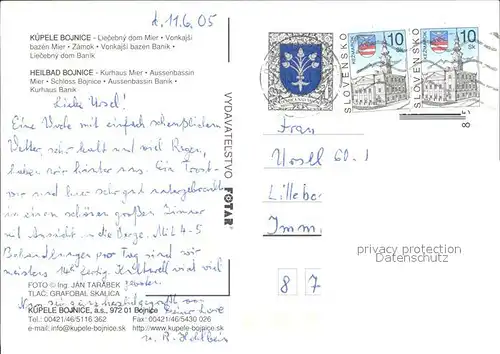 d. 11.6.05
KÚPELE BOJNICE - Liečebný dom Mier • Vonkajší
bazén Mier • Zámok • Vonkajší bazén Baník •
Liečebný dom Baník
HEILBAD BOJNICE - Kurhaus Mier • Aussenbassin
Mier • Schloss Bojnice • Aussenbassin Baník •
Kurhaus Baník
Liebe Ursel!
Eine Woche mit einfach scheußlichem
Wetter, sehr kalt und viel Regen,
haben wir hinter uns. Ein Trost
wir sind hier sehr gut untergebracht
in einem schönen großen Zimmer
mit Aussicht in die Berge. Mit 4-5
Behandlungen pro Tag sind wir
meistens 14 fertig. Kulturell wird viel
FOTO © Ing. JÁN TARÁBEK
TLAČ: GRAFOBAL SKALICA
KÚPELE BOJNICE, a.s., 972 01 Bojnice
Tel.: 00421/46/5116 362 Fax: 00421/46/5430 026
e-mail: info@kupele-bojnice.sk http://www.kupele-bojnice.sk
VYDAVATEĽSTVO FOTAR
SLOVENSKO
KEŽMAROK
10
Sk
SLOVENSKO
KEŽMAROK
10
Sk
Frau
Ursel
Imm
8 7
privacy protection
Datenschutz